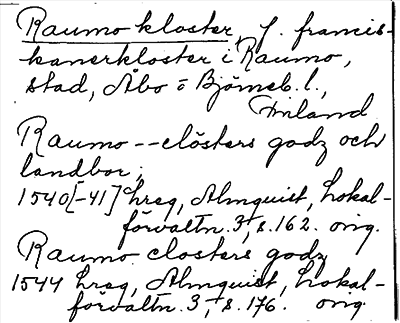 Raumo kloster, f. francis-
kanerkloster i Raumo,
stad, Åbo o Björneb. l.,
Finland
Raumo -- clösters godz och
landbor;
1540[-41] hreg, Almquist, Lokal-
förvaltn. 3, s. 162. orig.
Raumo closters godz
1544 hreg, Almquist, Lokal-
förvaltn. 3, s. 176. orig